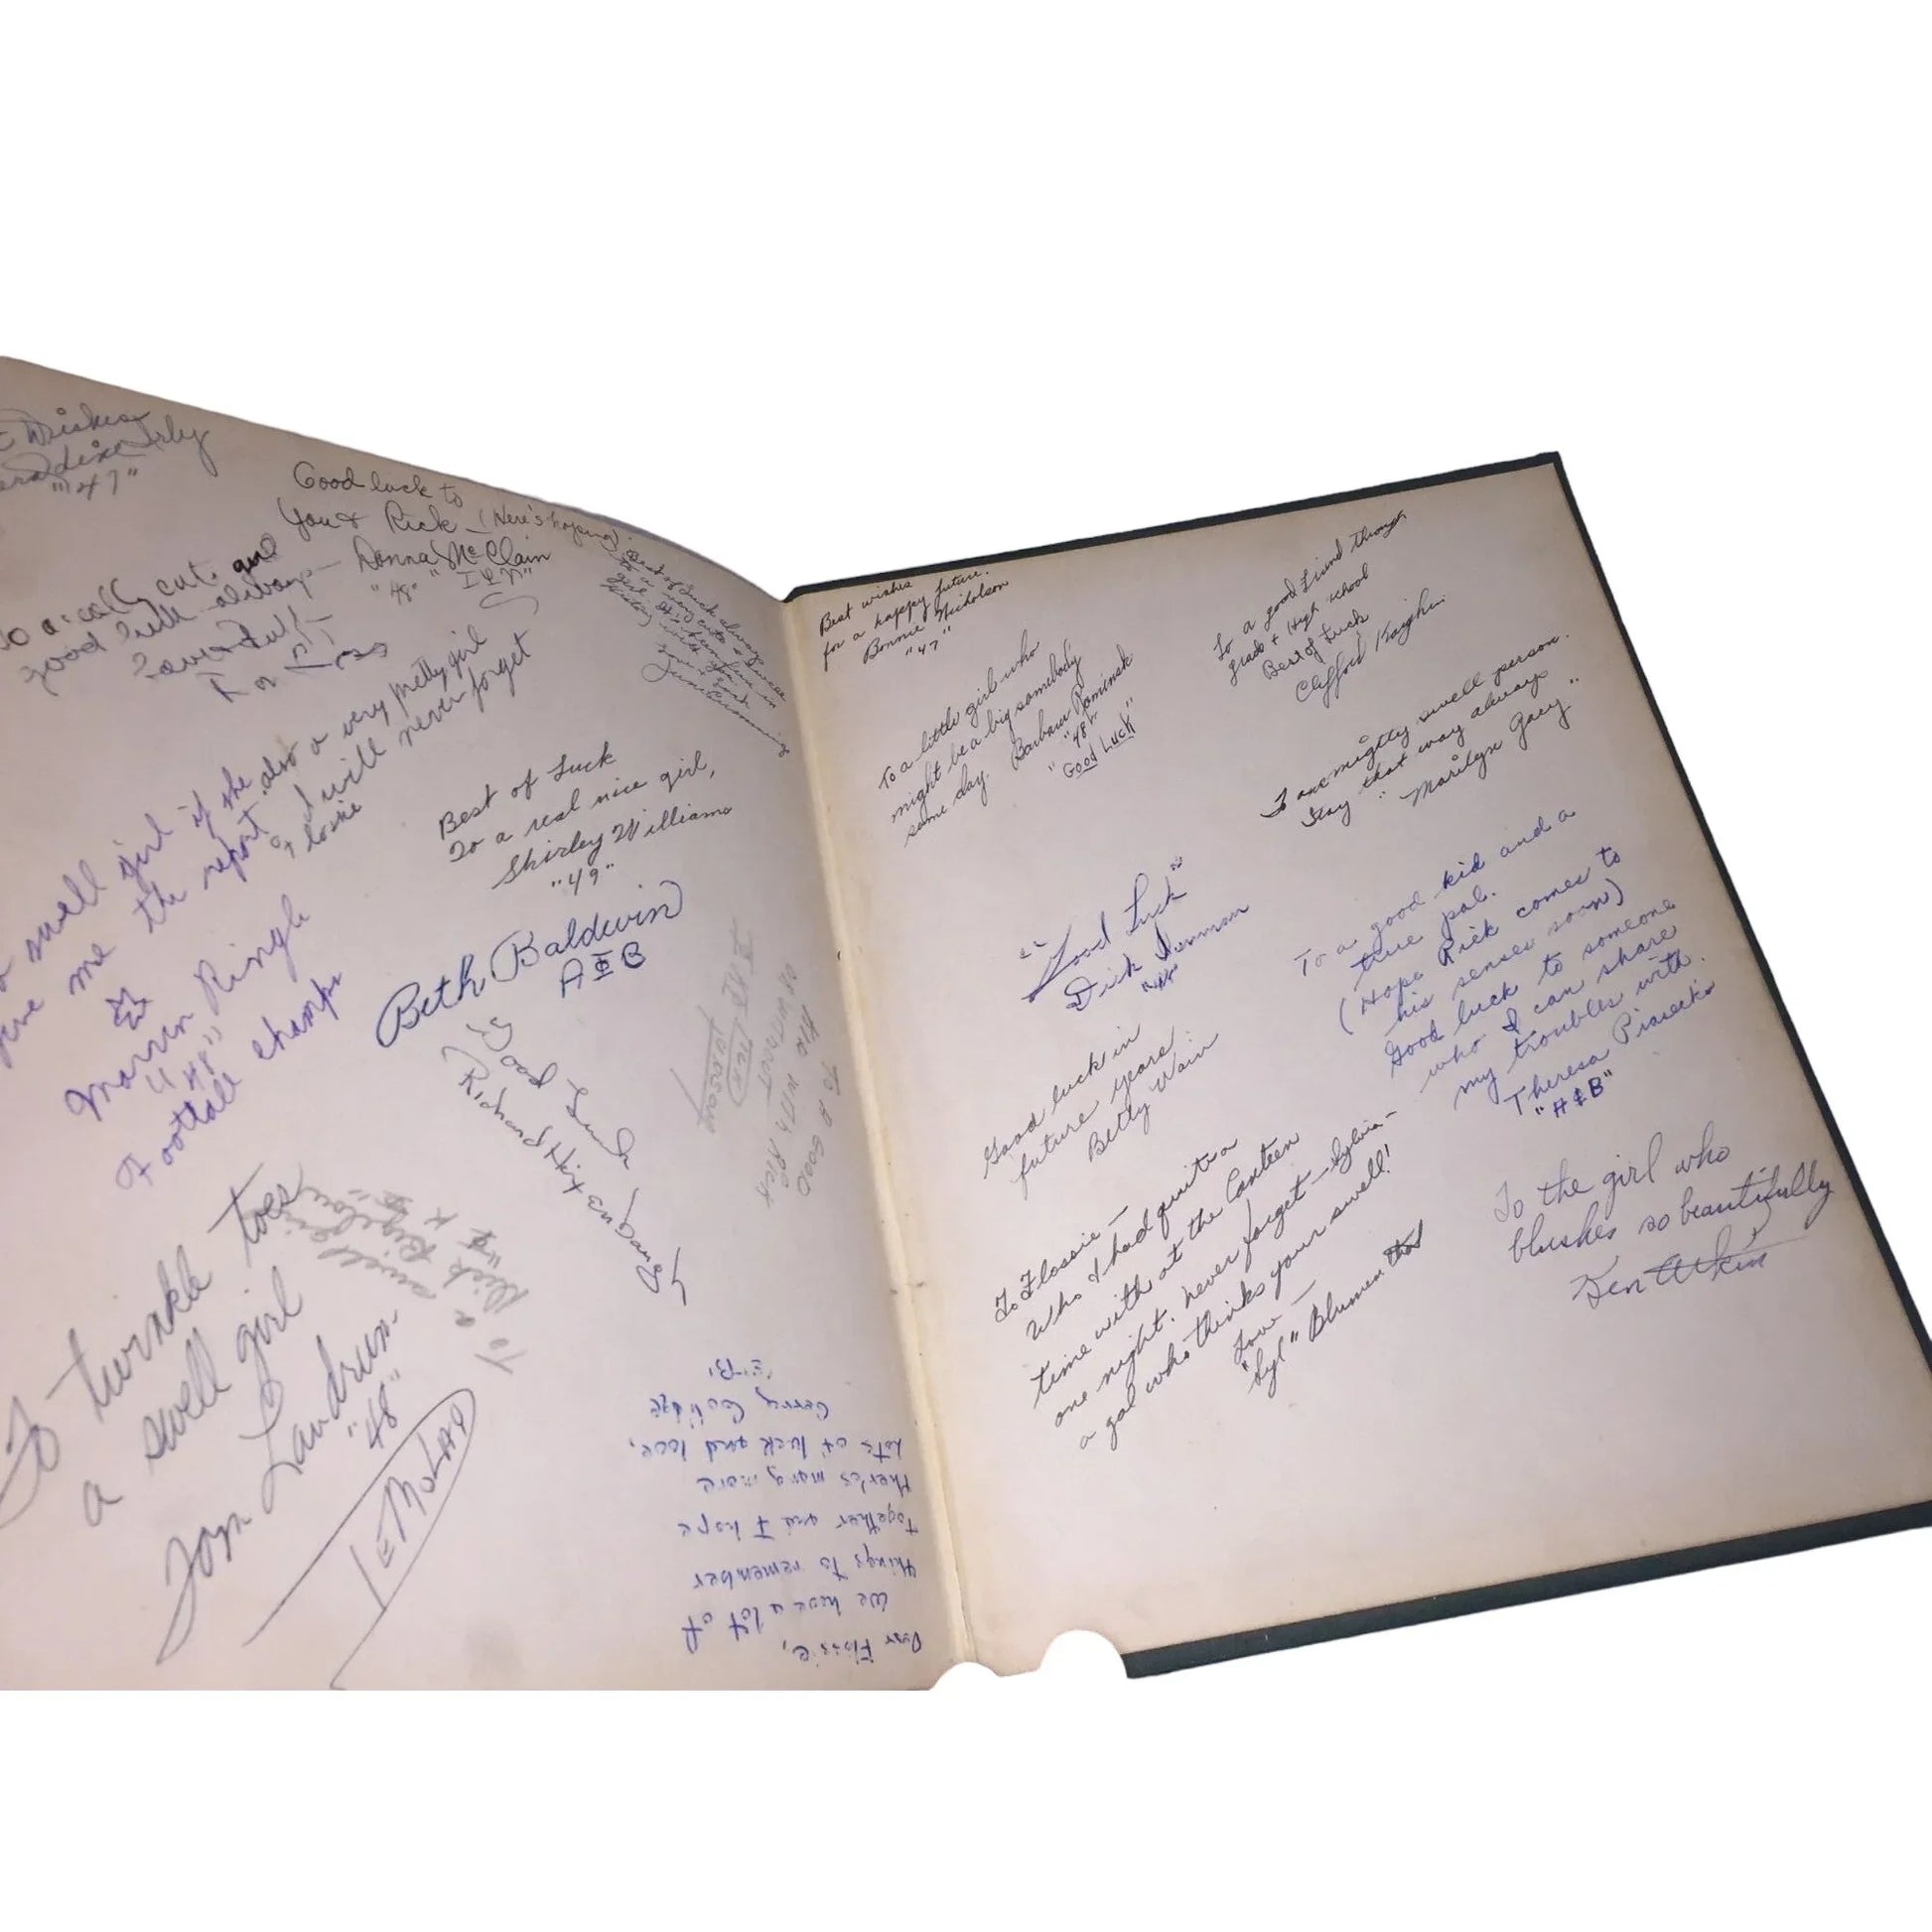 Wishes
"47"
Good luck to
You & Rick - (Here's hoping)
Donna McClain
"48"
cute girl
good luck always
also a very pretty girl
I will never forget
swell girl if
me the report
Marvin Ringle
"48"
Football champs
Best of Luck always
to a very cute & sweet
girl. It's been fun in
June Cummings
Best of Luck
To a real nice girl,
Shirley Williams
"49"
Beth Baldwin
AΦB
Good Luck
Richard Hix
To a good
kid with Rick
or without
To twinkle toes
a swell girl
Tom Landrum
"48"
LEMOLAD
To a
swell girl
Dick
Dear Flossie,
We have a lot of
things to remember
together and I hope
there's many more
Lots of luck and love,
Gerry Coolidge
Best wishes
for a happy future.
Bonnie Nicholson
"47"
To a little girl who
might be a big somebody
some day. Barbara Kaminsk
"48"
"Good Luck"
To a good friend through
grade & High school
Best of Luck
Clifford
To one mighty swell person.
Stay that way always
"Marilyn Gary"
"Good Luck"
Dick
To a good kid and a
true pal.
(Hope Rick comes to
his senses soon)
Good luck to someone
who I can share
my troubles with.
Theresa Piasecki
Good luck in
future years
Betty Wain
To Flossie —
Who I had quite a
time with at the Canteen
one night. never forget — Sylvia —
a gal who thinks your swell!
Love —
"Syl" Blumenthal
To the girl who
blushes so beautifully
Ken Atkin